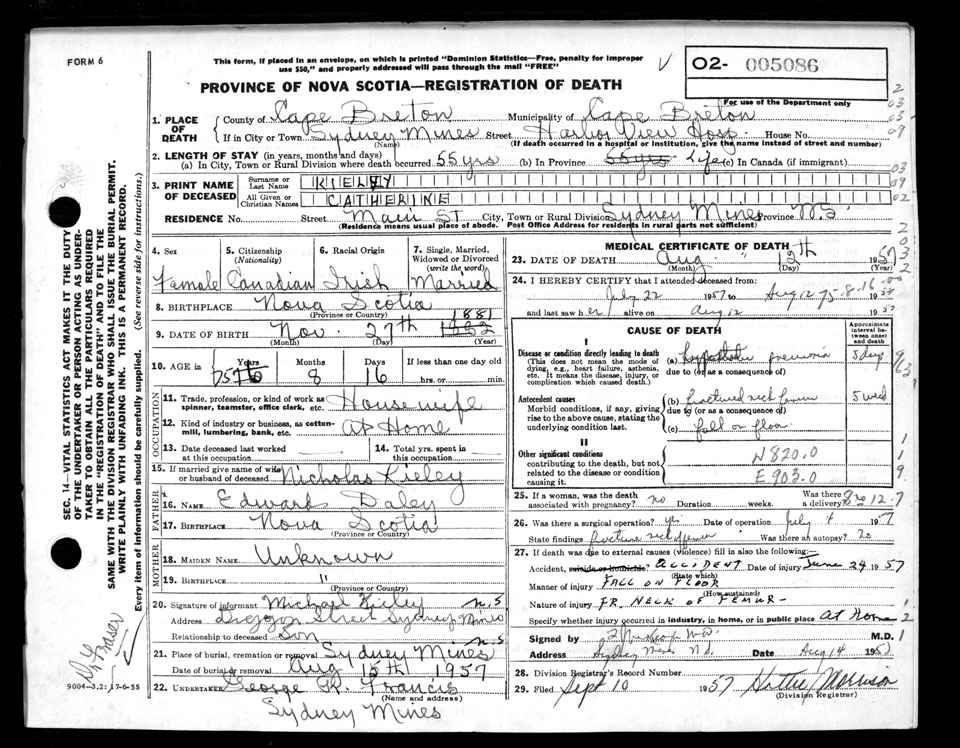 FORM 6
This form, if placed in an envelope, on which is printed "Dominion Statistics—Free, penalty for improper
use $50," and properly addressed will pass through the mail "FREE"
O2- 005086
For use of the Department only
PROVINCE OF NOVA SCOTIA—REGISTRATION OF DEATH
1. PLACE OF DEATH
County of Cape Breton Municipality of Cape Breton
If in City or Town Sydney Mines Street Harbor View Hosp. House No.
(Name) (If death occurred in a hospital or institution, give the name instead of street and number)
2. LENGTH OF STAY (in years, months and days)
(a) In City, Town or Rural Division where death occurred 55 yrs (b) In Province 55 yrs Life (c) In Canada (if immigrant)
3. PRINT NAME OF DECEASED
Surname or Last Name KIELY
All Given or Christian Names CATHERINE
RESIDENCE No. Street Main St City, Town or Rural Division Sydney Mines Province N.S.
(Residence means usual place of abode. Post Office Address for residents in rural parts not sufficient)
4. Sex
Female
5. Citizenship (Nationality)
Canadian
6. Racial Origin
Irish
7. Single, Married, Widowed or Divorced (write the word)
Married
8. BIRTHPLACE Nova Scotia
(Province or Country)
1881
9. DATE OF BIRTH Nov. 27th 1882
(Month) (Day) (Year)
10. AGE in Years Months Days If less than one day old
75 8 16 hrs. or min.
OCCUPATION
11. Trade, profession, or kind of work as spinner, teamster, office clerk, etc. Housewife
12. Kind of industry or business, as cotton-mill, lumbering, bank, etc. At Home
13. Date deceased last worked at this occupation
14. Total yrs. spent in this occupation
15. If married give name of wife or husband of deceased Nicholas Kieley
FATHER
16. NAME Edward Daley
17. BIRTHPLACE Nova Scotia
(Province or Country)
MOTHER
18. MAIDEN NAME Unknown
19. BIRTHPLACE "
(Province or Country)
20. Signature of informant Michael Kiely N.S
Address Street Sydney Mines
Relationship to deceased Son
21. Place of burial, cremation or removal Sydney Mines N.S
Date of burial or removal Aug 15th 1957
22. UNDERTAKER George R. Francis
(Name and address)
Sydney Mines
MEDICAL CERTIFICATE OF DEATH
23. DATE OF DEATH Aug. 12th 1957
(Month) (Day) (Year)
24. I HEREBY CERTIFY that I attended deceased from:
July 22 1957 to Aug 12 1957
75-8-16-00
and last saw her alive on Aug 12 1957
CAUSE OF DEATH
Approximate interval between onset and death
I
Disease or condition directly leading to death
(This does not mean the mode of dying, e.g., heart failure, asthenia, etc. It means the disease, injury, or complication which caused death.)
(a) hypostatic pneumonia 5 days
due to (or as a consequence of)
Antecedent causes
Morbid conditions, if any, giving rise to the above cause, stating the underlying condition last.
(b) fractured neck femur 5 week
due to (or as a consequence of)
(c) fall on floor
II
Other significant conditions
contributing to the death, but not related to the disease or condition causing it.
N820.0
E903.0
25. If a woman, was the death associated with pregnancy? no Duration weeks. Was there a delivery? no
26. Was there a surgical operation? yes Date of operation July 4 1957
State findings fracture neck femur Was there an autopsy? no
27. If death was due to external causes (violence) fill in also the following:—
Accident, suicide or homicide? ACCIDENT Date of injury June 24 1957
(State which)
Manner of injury FALL ON FLOOR
(How sustained)
Nature of injury FR. NECK OF FEMUR-
Specify whether injury occurred in industry, in home, or in public place At Home
Signed by M.D.
Address Sydney Mines N.S. Date Aug 14 1957
28. Division Registrar's Record Number
29. Filed Sept 10 1957 Hattie Morrison
(Division Registrar)
SEC. 14—VITAL STATISTICS ACT MAKES IT THE DUTY
OF THE UNDERTAKER OR PERSON ACTING AS UNDER-
TAKER TO OBTAIN ALL THE PARTICULARS REQUIRED
IN THE "REGISTRATION OF DEATH" AND TO FILE THE
SAME WITH THE DIVISION REGISTRAR WHO SHALL ISSUE THE BURIAL PERMIT.
WRITE PLAINLY WITH UNFADING INK. THIS IS A PERMANENT RECORD.
Every item of information should be carefully supplied. (See reverse side for instructions.)
9004-3.2: 17-6-55